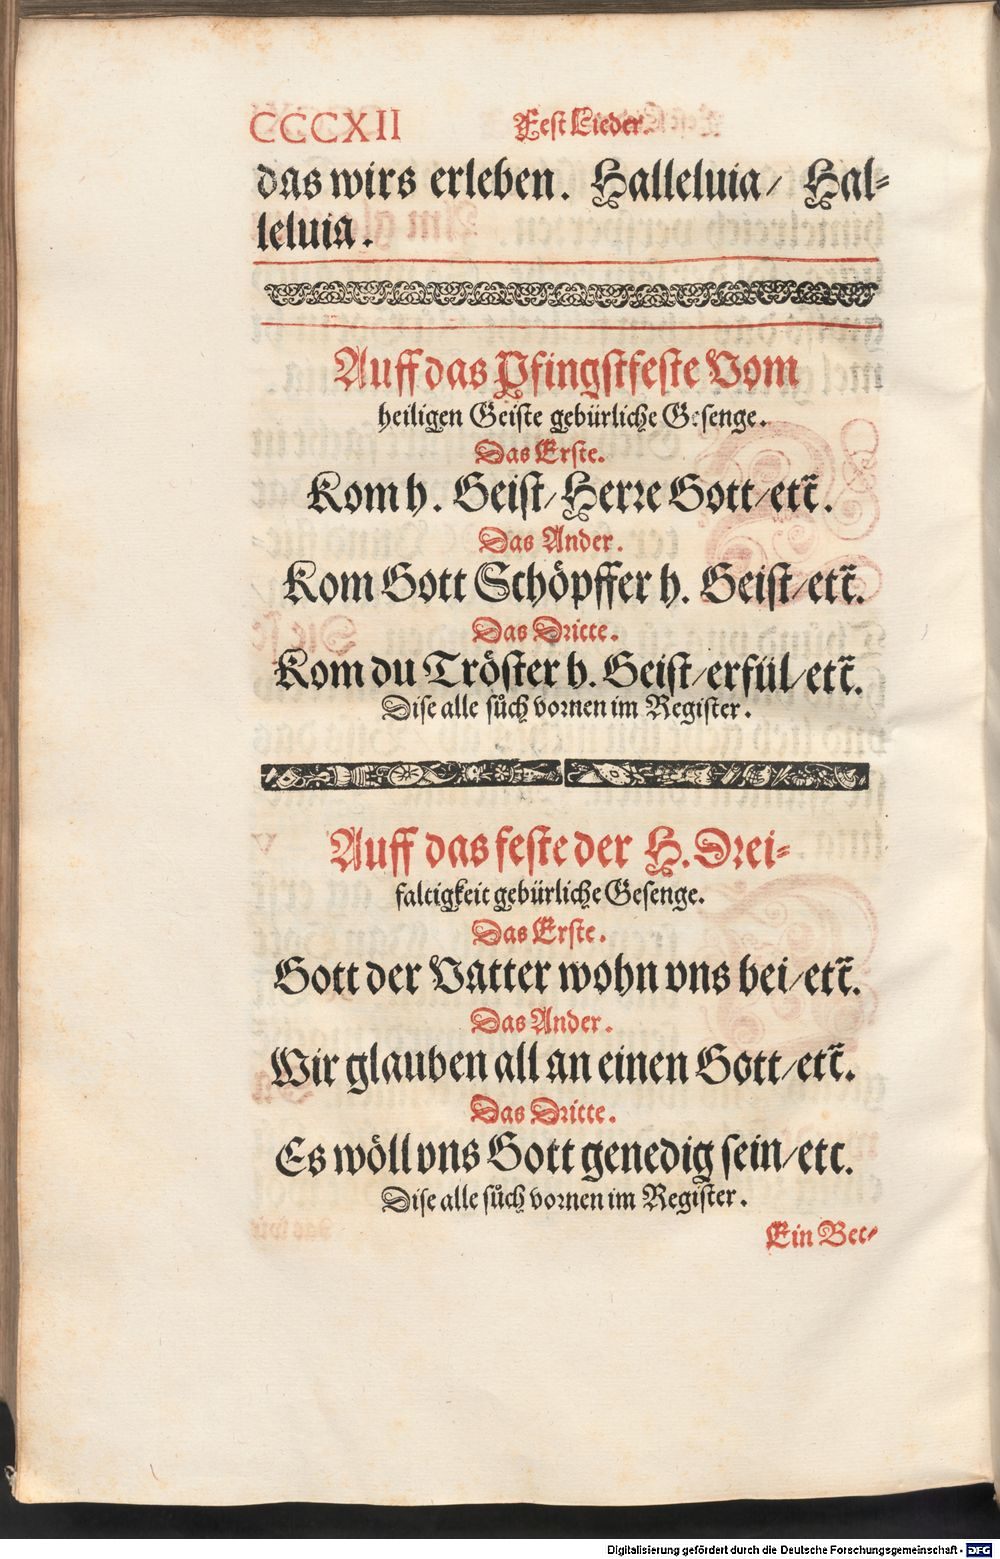 CCCXII Fest Lieder.
das wirs erleben. Halleluia/ Hal⸗
leluia.
Auff das Pfingstfeste Vom
heiligen Geiste gebürliche Gesenge.
Das Erste.
Kom h. Geist/ Herre Gott/ etc̃.
Das Ander.
Kom Gott Schöpffer h. Geist/ etc̃.
Das Dritte.
Kom du Tröster h. Geist/ erfül/ etc̃.
Dise alle sůch vornen im Register.
Auff das feste der H. Drei⸗
faltigkeit gebürliche Gesenge.
Das Erste.
Gott der Vatter wohn vns bei/ etc̃.
Das Ander.
Wir glauben all an einen Gott/ etc̃.
Das Dritte.
Es wöll vns Gott genedig sein/ etc.
Dise alle sůch vornen im Register.
Ein Bet⸗
Digitalisierung gefördert durch die Deutsche Forschungsgemeinschaft - DFG